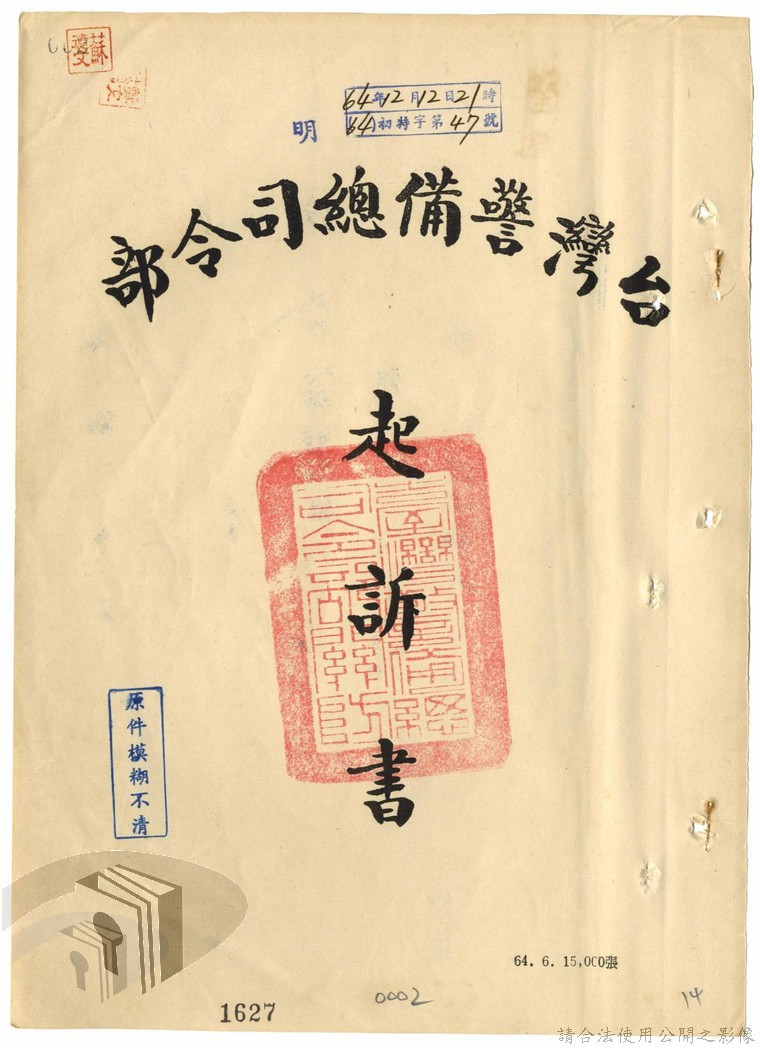 蘇
64年12月12日21時
(64)初特字第47號
明
台灣警備總司令部
起訴書
原件模糊不清
64. 6. 15,000張
1627
0002
14
請合法使用公開之影像